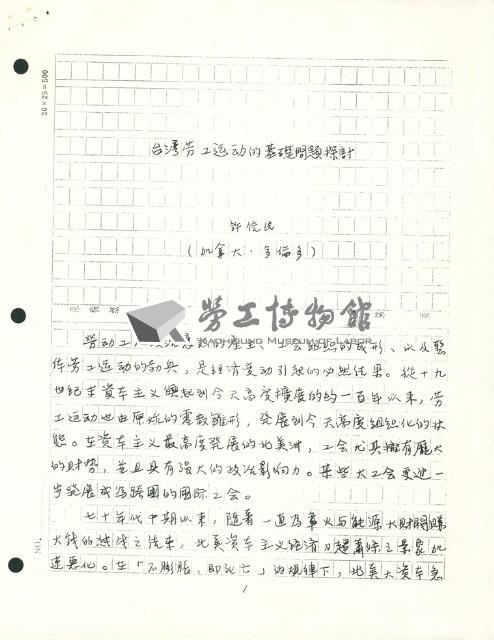 20×25=500
台灣劳工运动的基礎問題探討
許信民
(加拿大·多倫多)
勞工博物館
KAOHSIUNG MUSEUM OF LABOR
勞动工
組織的成形、以及整
体劳工运动的勃兴,是經济变动引起的必然结果。從十九
世紀末资本主义興起到今天高度擴展的约一百年以来,劳
工运动也由原始的零散雛形,発展到今天高度組织化的状
態。在资本主义最高度発展的北美洲,工会尤其擁有龐大
的财势,並且具有强大的政治影响力。某些大工会更進一
步発展成為跨國的国际工会。
七十年代中期以来,隨着一直為軍火与能源大财閥賺
大钱的越战之结束,北美资本主义经济日趨蕭條之景象加
速恶化。在「不膨脹,即死亡」的规律下,北美大资本急
NO.
1